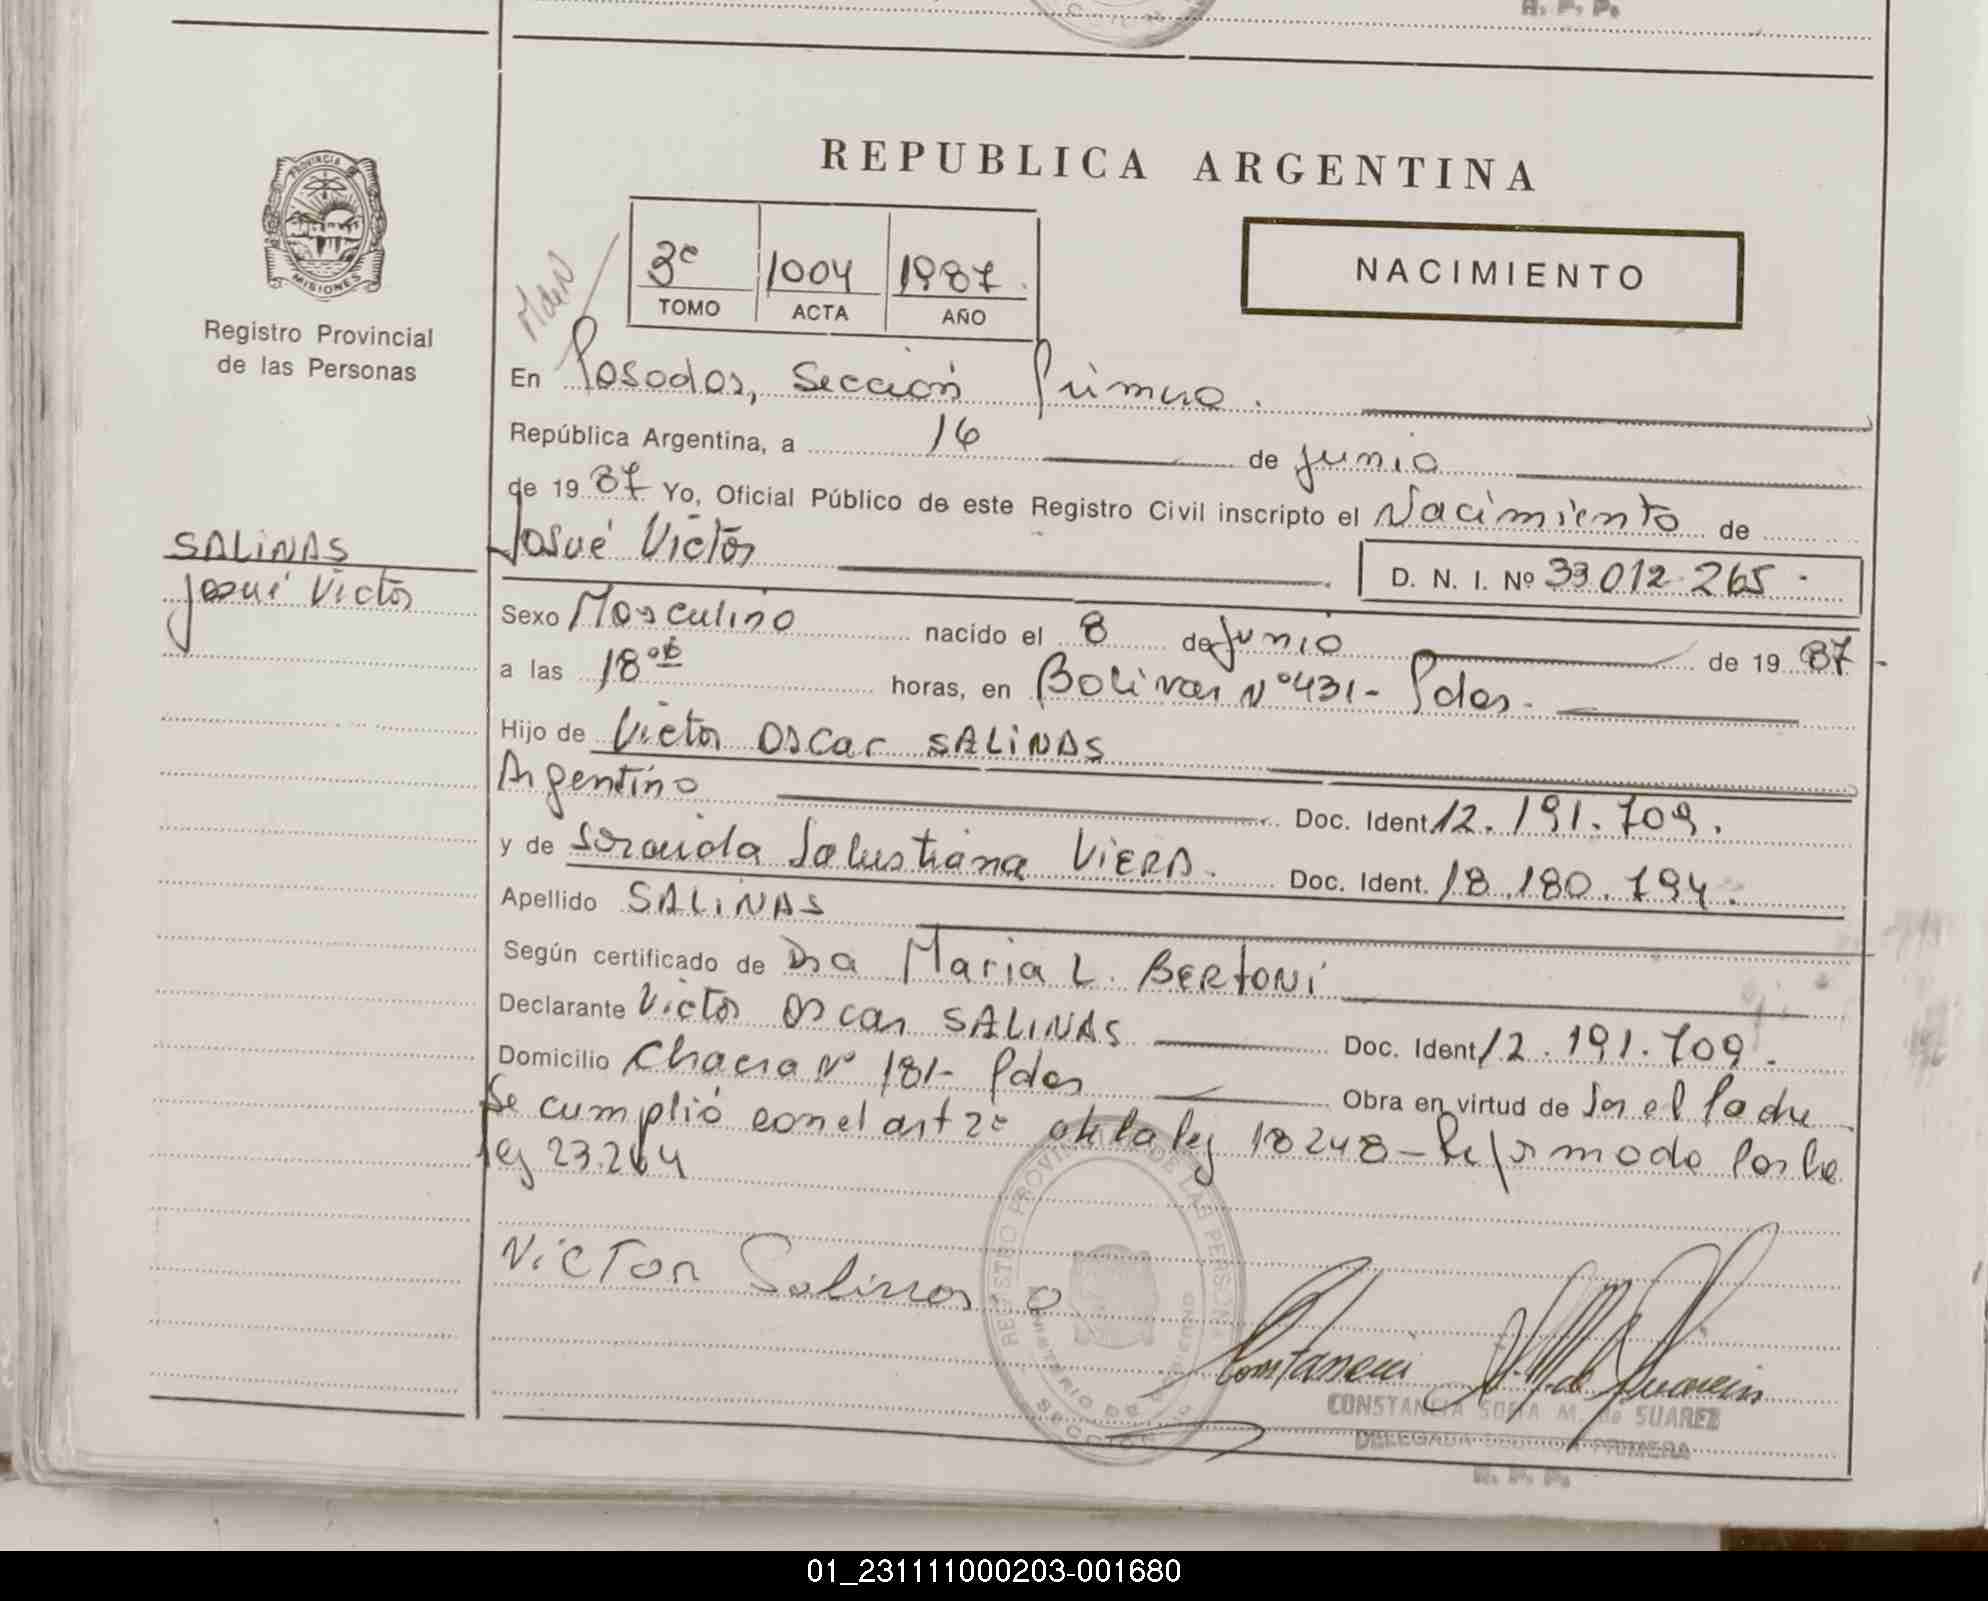 R. P. P.
PROVINCIA
MISIONES
Registro Provincial
de las Personas
SALINAS
Josué Victor
REPUBLICA ARGENTINA
3º 1004 1987
TOMO ACTA AÑO
NACIMIENTO
En Posadas, Sección Primera.
República Argentina, a 16 de junio
de 1987 Yo, Oficial Público de este Registro Civil inscripto el Nacimiento de
Josué Victor
D. N. I. Nº 33.012.265.
Sexo Masculino nacido el 8 de junio de 1987
a las 18 horas, en Bolivar Nº 431- Pdas.
Hijo de Victor Oscar SALINAS
Argentino Doc. Ident. 12.191.709.
y de Salustiana VIERA. Doc. Ident. 18.180.794.
Apellido SALINAS
Según certificado de Dra Maria L. BERTONI
Declarante Victor Oscar SALINAS Doc. Ident. 12.191.709.
Domicilio Chacra Nº 181- Pdas Obra en virtud de Ser el Padre
Se cumplió con el art 2º de la ley 18248- Reformado Por la
ley 23.264
VICTOR Salinas O
REGISTRO PROVINCIAL DE LAS PERSONAS
MINISTERIO DE GOBIERNO
SECCION
CONSTANCIA SOFIA M. de SUAREZ
DELEGADA SECCION PRIMERA
R. P. P.
01_231111000203-001680